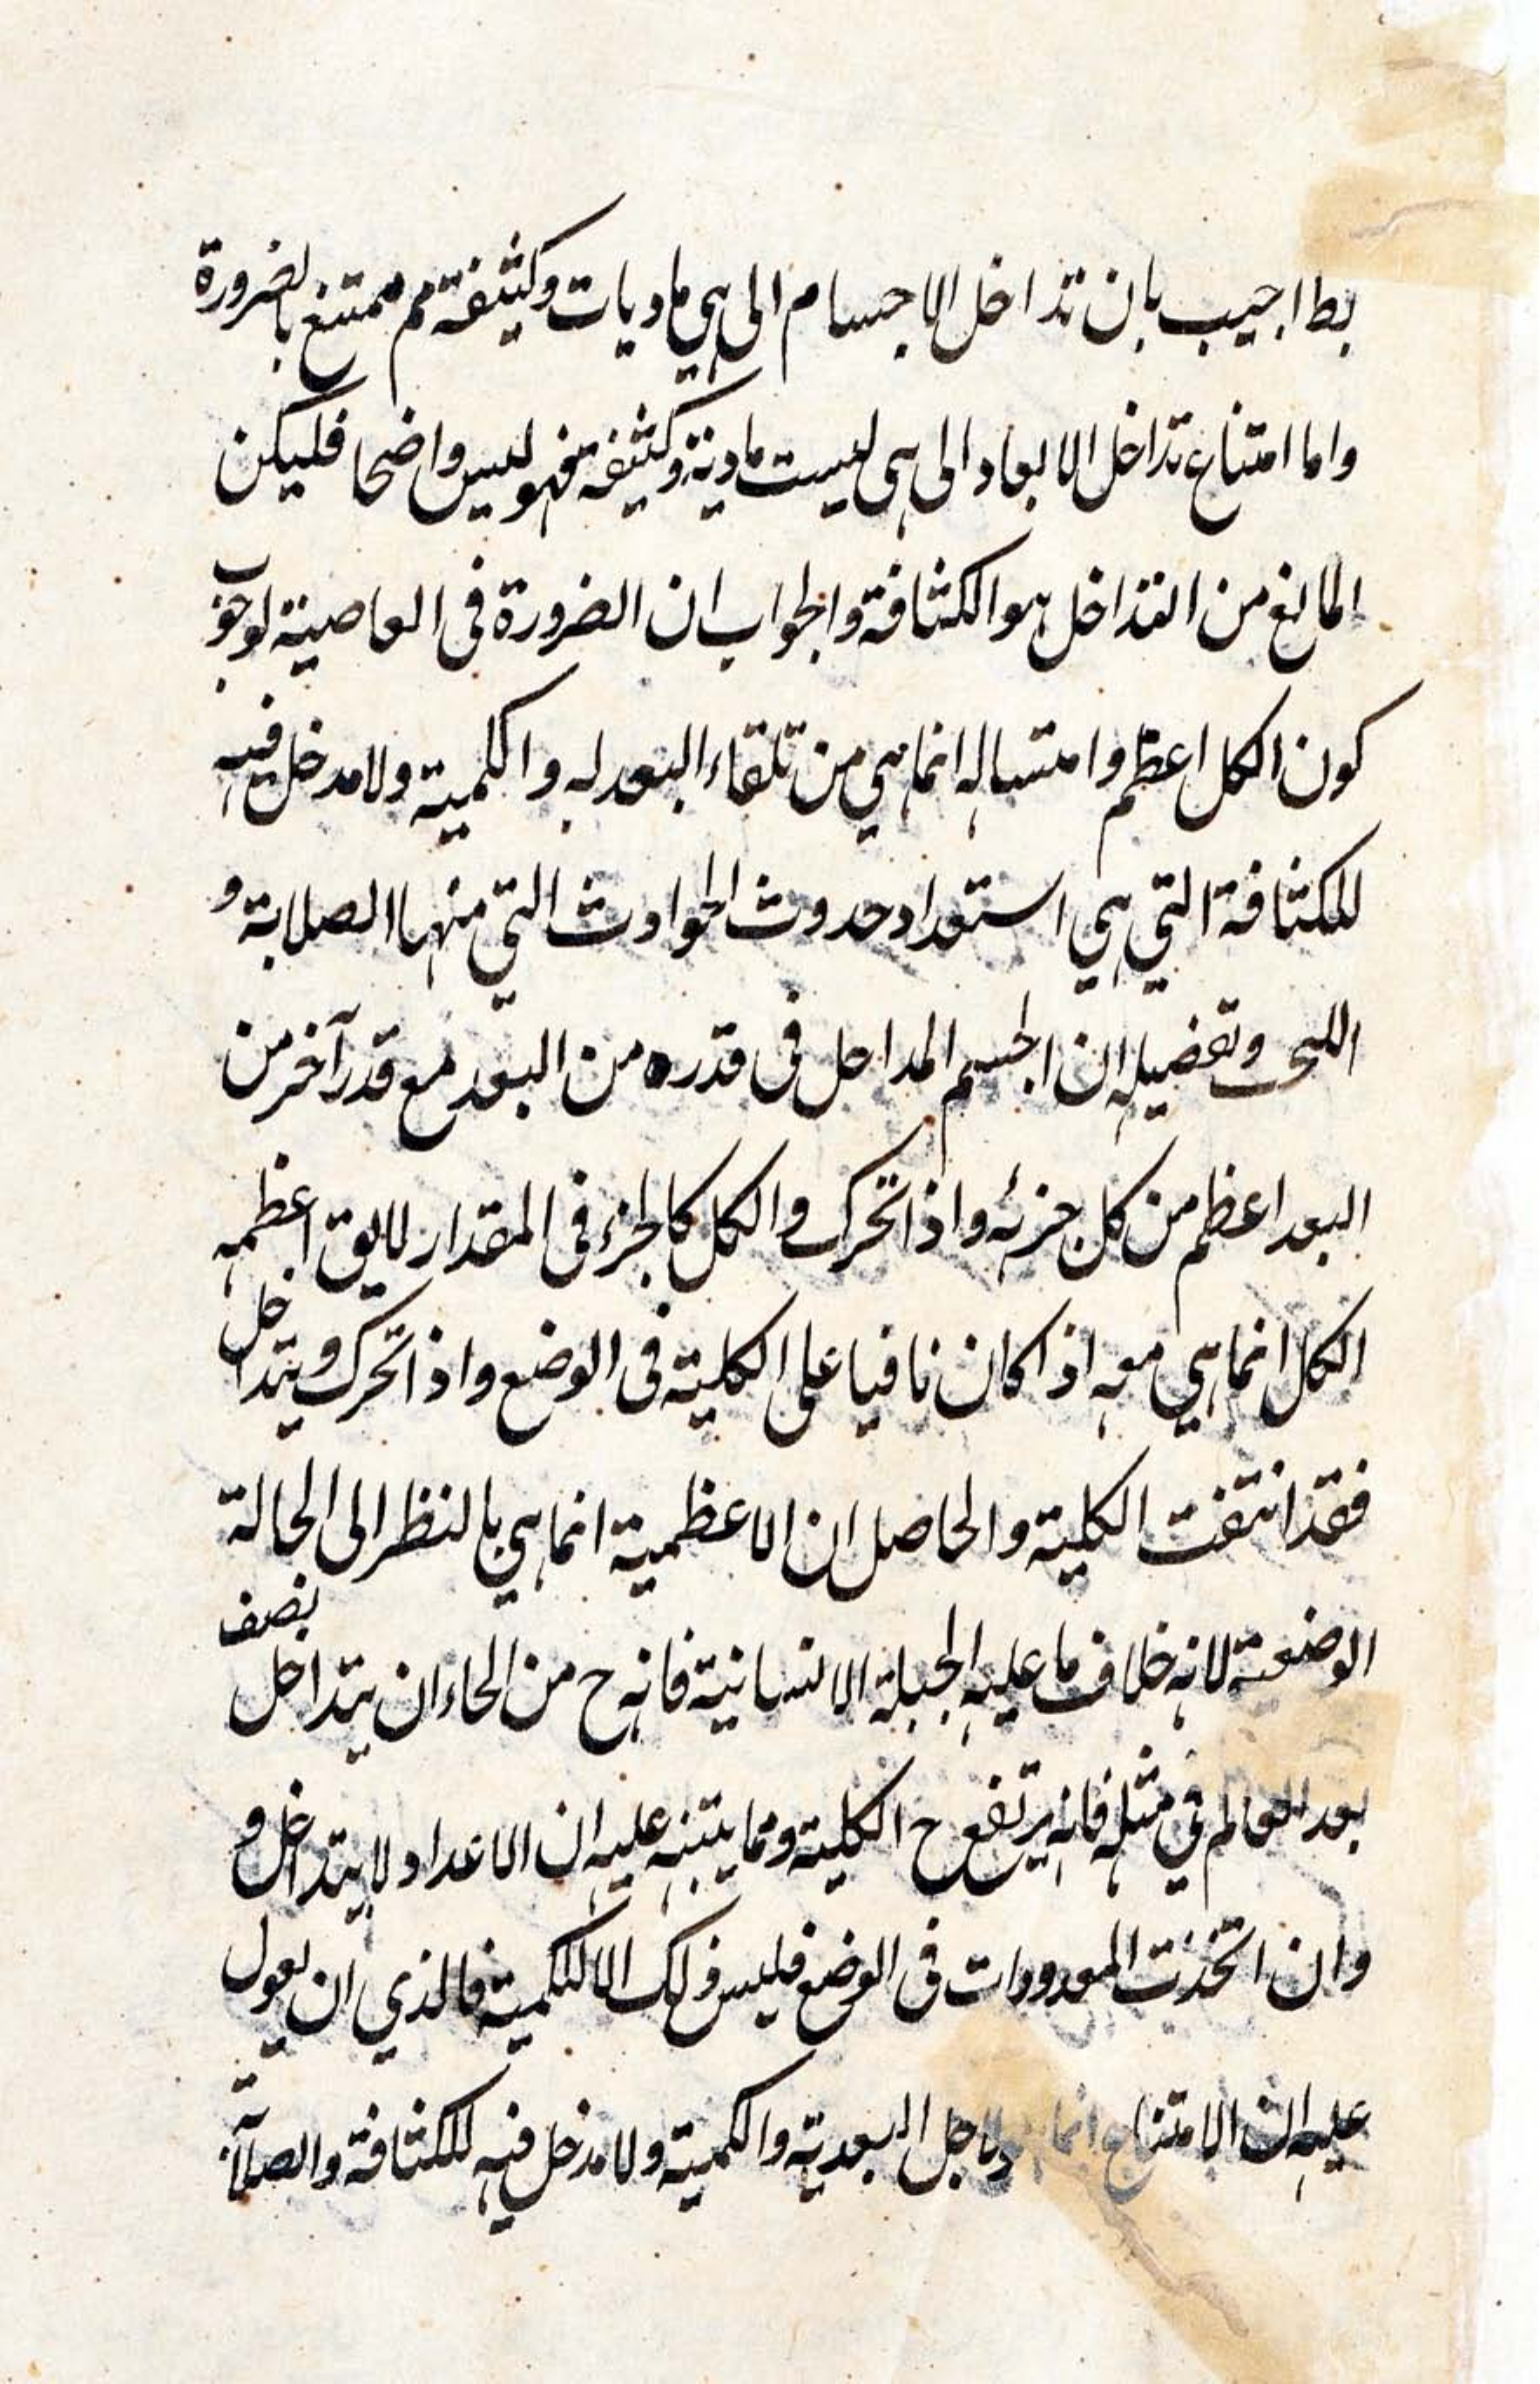 بط اجيب بان تداخل الاجسام الى هي ماديات وكثيفة مم ممتنع بالضرورة
واما امتناع تداخل الابعاد الى هى ليست مادية وكثيفة فهو ليس واضحا فليكن
المانع من التداخل هو الكثافة والجواب ان الضرورة فى العاصية لوجوب
كون الكل اعظم وامتساله انما هي من تلقاء البعد له والكمية ولا مدخل فيه
للكثافة التي هي استعداد حدوث الحوادث التي منها الصلابة و
وتفضيله ان الجسم المداحل فى قدره من البعد مع قدر آخر من
البعد اعظم من كل جزئه واذا تحرك والكل كالجزء فى المقدار لا يق اعظمه
الكل انما هي معه اذا كان نافيا على الكلية فى الوضع واذا تحرك ويتداخل
فقد انتفت الكلية والحاصل ان الاعظمية انما هي بالنظر الى الحالة
الوضعية لانه خلاف ما عليه الجبلة الانسانية فانه ح من الحاء ان يتداخل نصف
بعد العالم في مثله فانه يرتفع ح الكلية ومما يتنبه عليه ان الاعداد لا يتداخل و
وان اتخذت المعدودات فى الوضع فليس ذلك الا للكمية فالذي ان يعول
عليه ان الامتناع انما لاجل البعدية والكمية ولا مدخل فيه للكثافة والصلابة